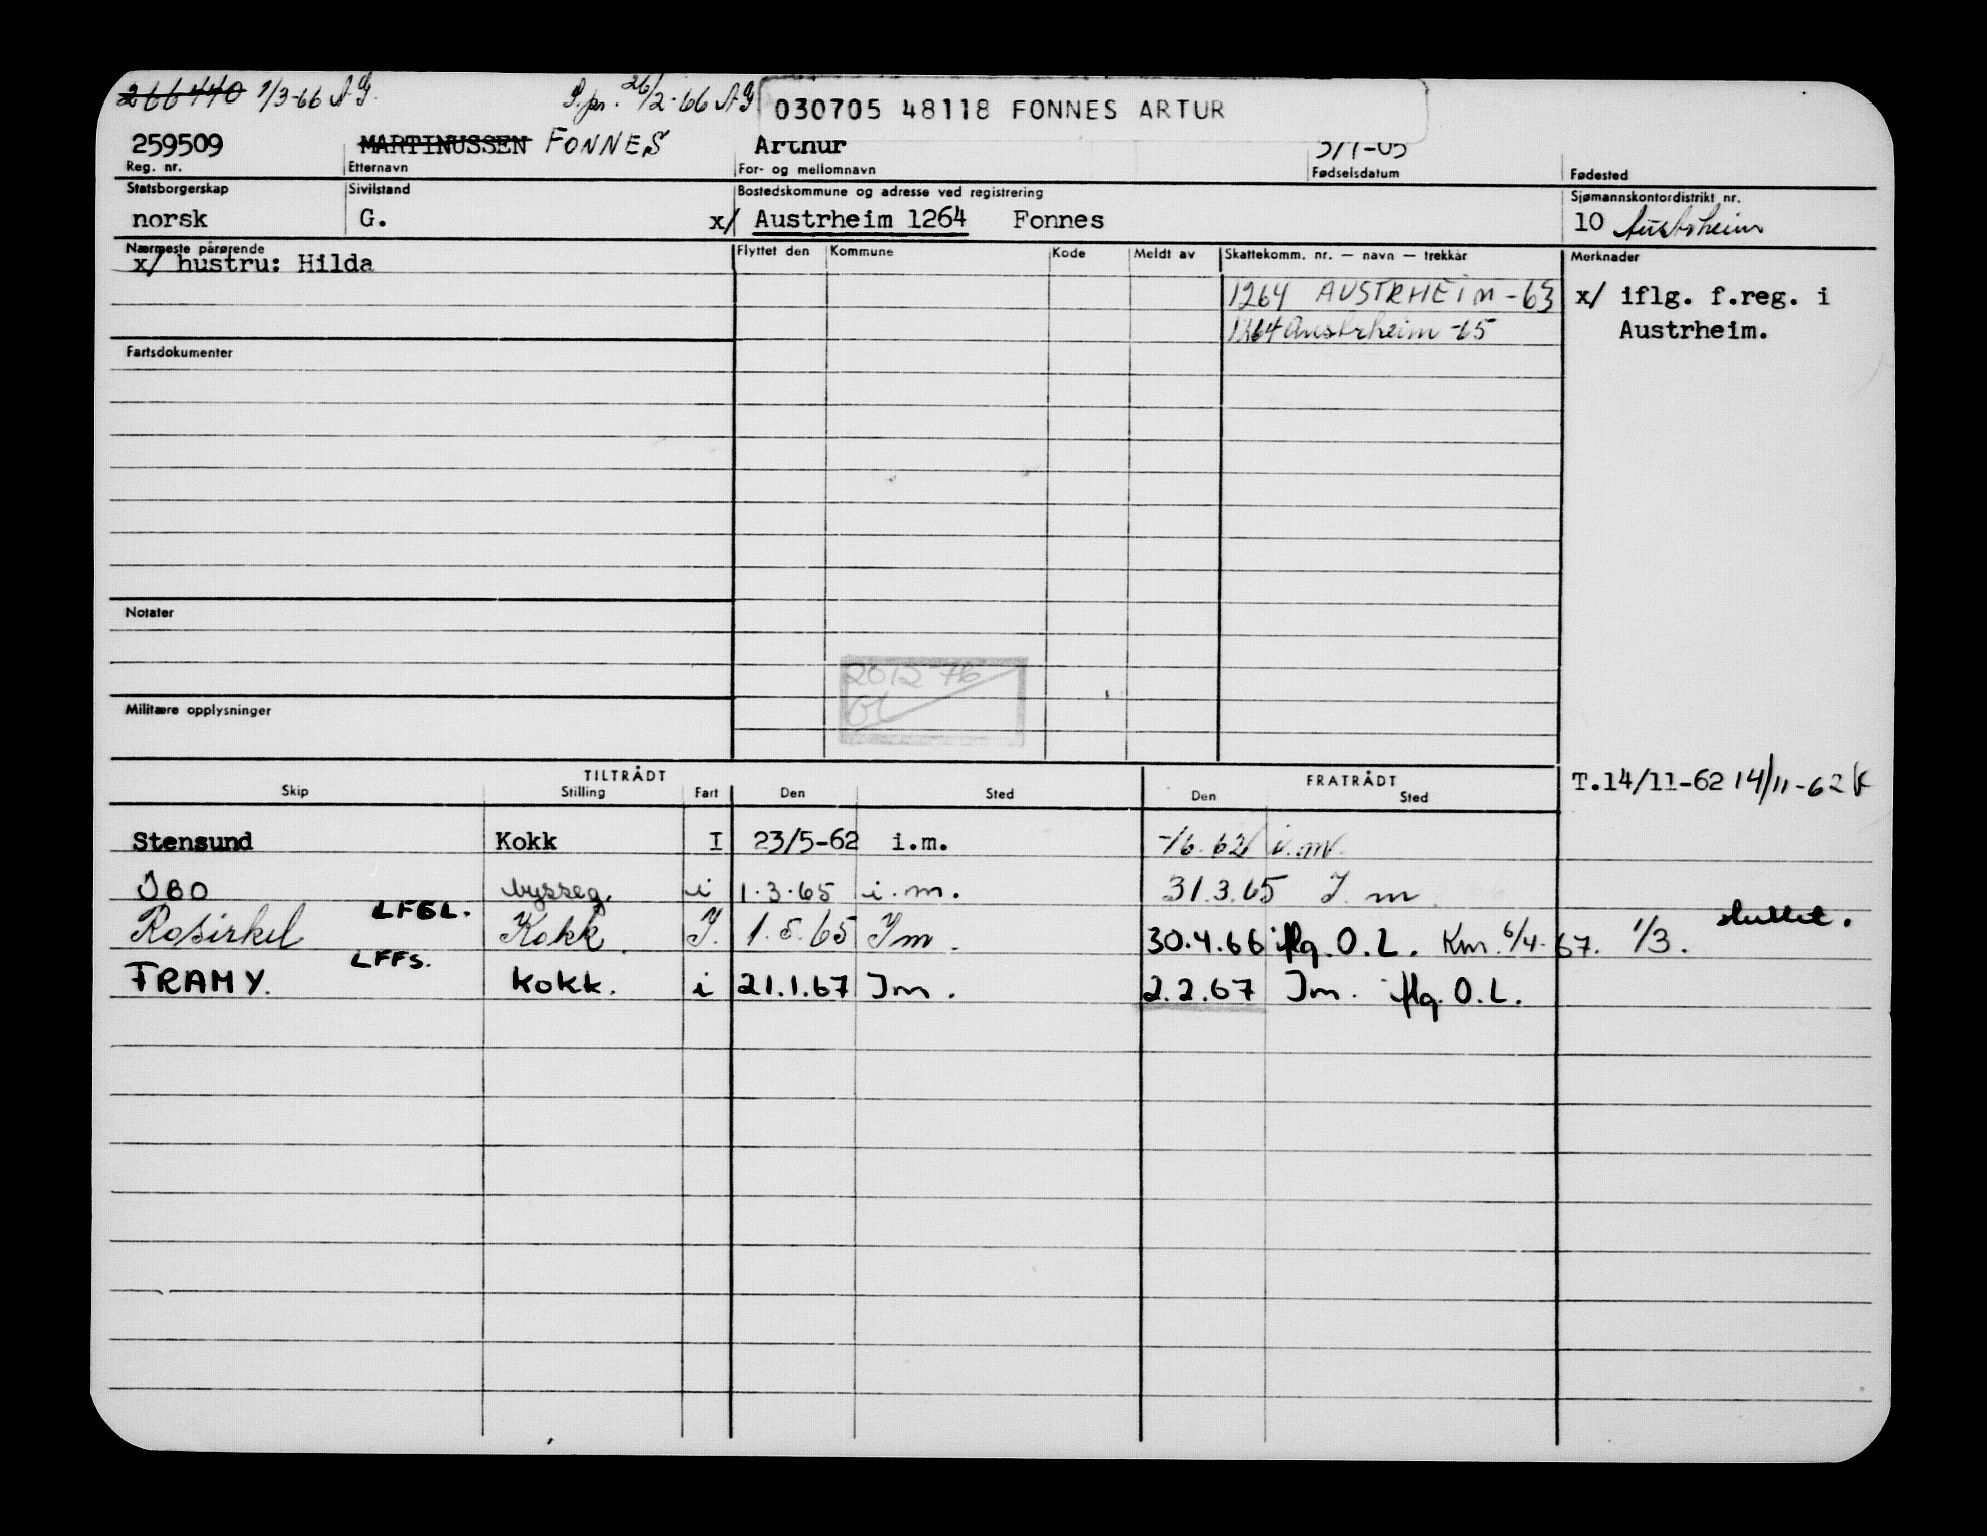 266440 1/3-66 A.G. P.pr. 26/2-66 A.G
030705 48118 FONNES ARTUR
259509 MARTINUSSEN FONNES Arthur 3/7-05
Reg. nr. Etternavn For- og mellomnavn Fødselsdatum Fødested
Statsborgerskap Sivilstand Bostedskommune og adresse ved registrering Sjømannskontordistrikt nr.
norsk G. x/ Austrheim 1264 Fonnes 10 Austrheim
Nærmeste pårørende Flyttet den Kommune Kode Meldt av Skattekomm. nr. — navn — trekkår Merknader
x/ hustru: Hilda
1264 AUSTRHEIM - 63 x/ iflg. f.reg. i
1264 Austrheim -65 Austrheim.
Fartsdokumenter
Notater
2012 76
Militære opplysninger
TILTRÅDT FRATRÅDT T.14/11-62 14/11-62
Skip Stilling Fart Den Sted Den Sted
Stensund Kokk I 23/5-62 i.m. -/6.62 i.m.
IBO bysseg. i 1.3.65 i.m. 31.3.65 I m
LFGL. sluttet.
Rosirkel Kokk I. 1.5.65 Im. 30.4.66 iflg. O.L. Km. 6/4-67. 1/3.
LFFS.
FRAMY. kokk. i 21.1.67 Im. 2.2.67 Im. iflg. O.L.